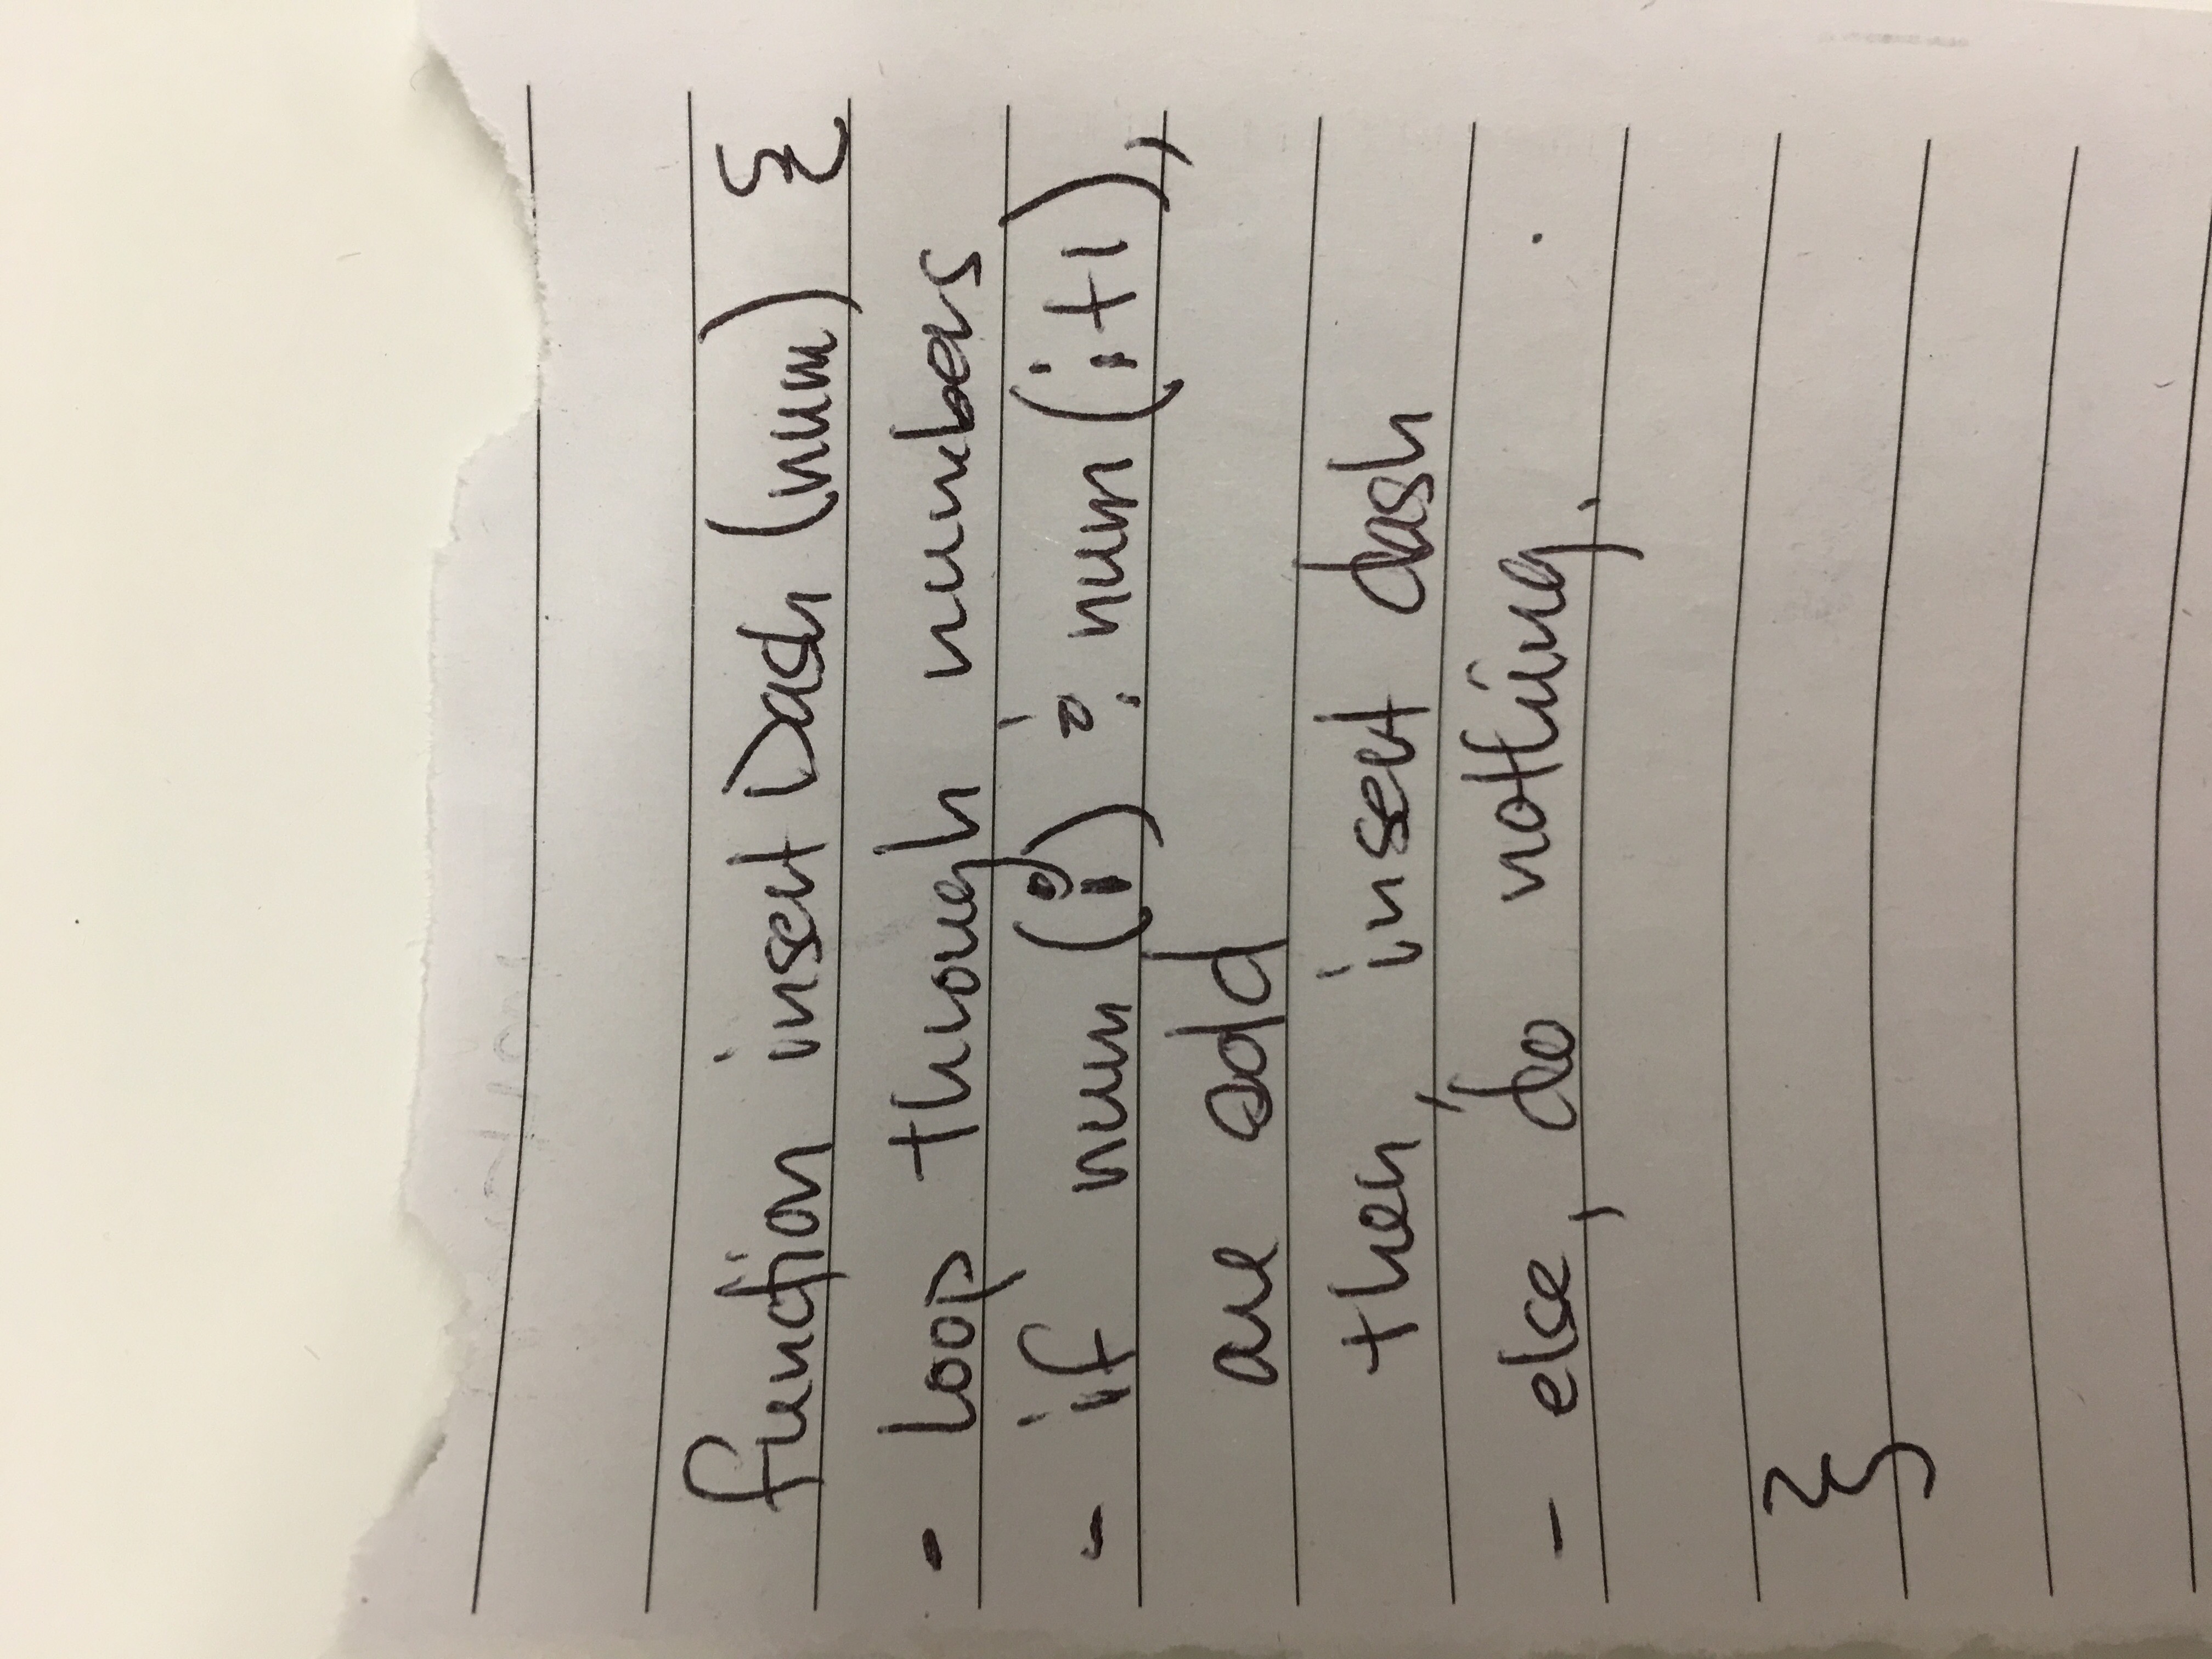 function insertDash (num) {
- loop through numbers
- if num (i) & num (i+1),
are odd
then, insert dash
- else, do nothing.
}